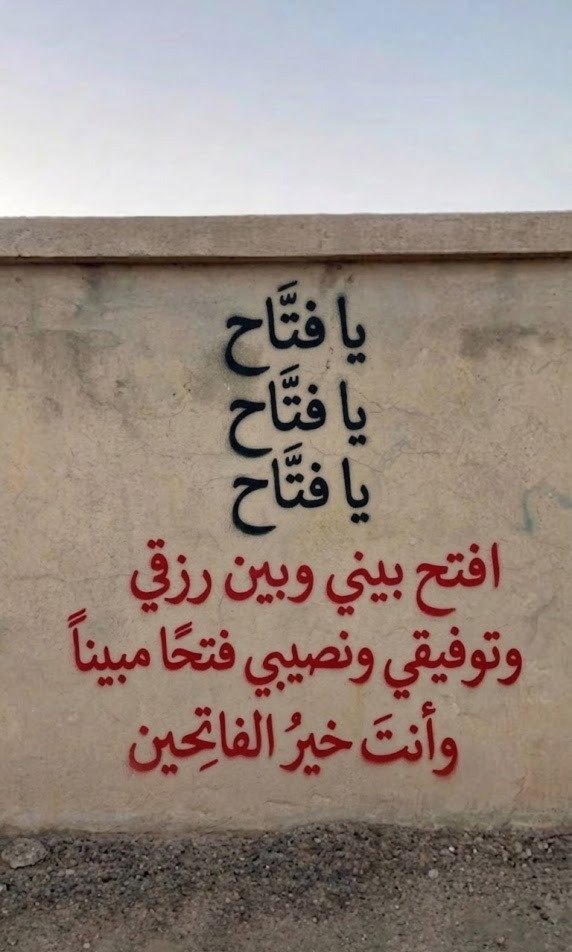 يا فتَّاح
يا فتَّاح
يا فتَّاح
افتح بيني وبين رزقي
وتوفيقي ونصيبي فتحًا مبيناً
وأنتَ خيرُ الفاتِحين